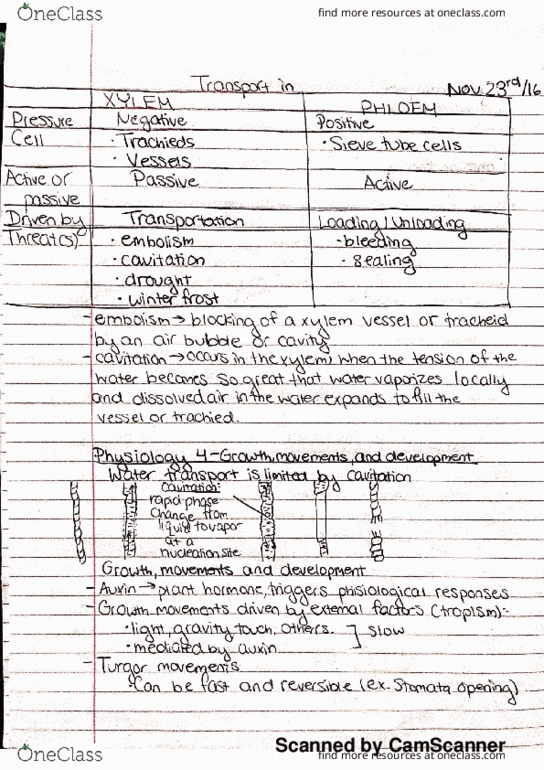 OneClass
find more resources at oneclass.com
Transport in
Nov. 23rd/16
XYLEM
PHLOEM
Pressure
Negative
Positive
Cell
· Trachieds
· Sieve tube cells
· Vessels
Active or
passive
Passive
Active
Driven by
Transportation
Loading/Unloading
Threat(s)
· embolism
· bleeding
· cavitation
· sealing
· drought
· winter frost
- embolism → blocking of a xylem vessel or tracheid
by an air bubble or cavity
- cavitation → occurs in the xylem, when the tension of the
water becomes so great that water vaporizes locally
and dissolved air in the water expands to fill the
vessel or trachied.
Physiology 4 - Growth, movements, and development
Water transport is limited by cavitation
Cavitation:
rapid phase
change from
liquid to vapor
at a
nucleation site
Growth, movements and development
- Auxin → plant hormone, triggers phisiological responses
- Growth movements driven by external factors (tropism):
· light, gravity touch, others. ] slow
· mediated by auxin
- Turgor movements
· Can be fast and reversible (ex. Stomata opening)
Scanned by CamScanner
OneClass
find more resources at oneclass.com